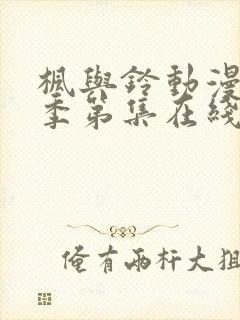 楓與鈴動漫
季第集在綫
俺有兩杆大狙